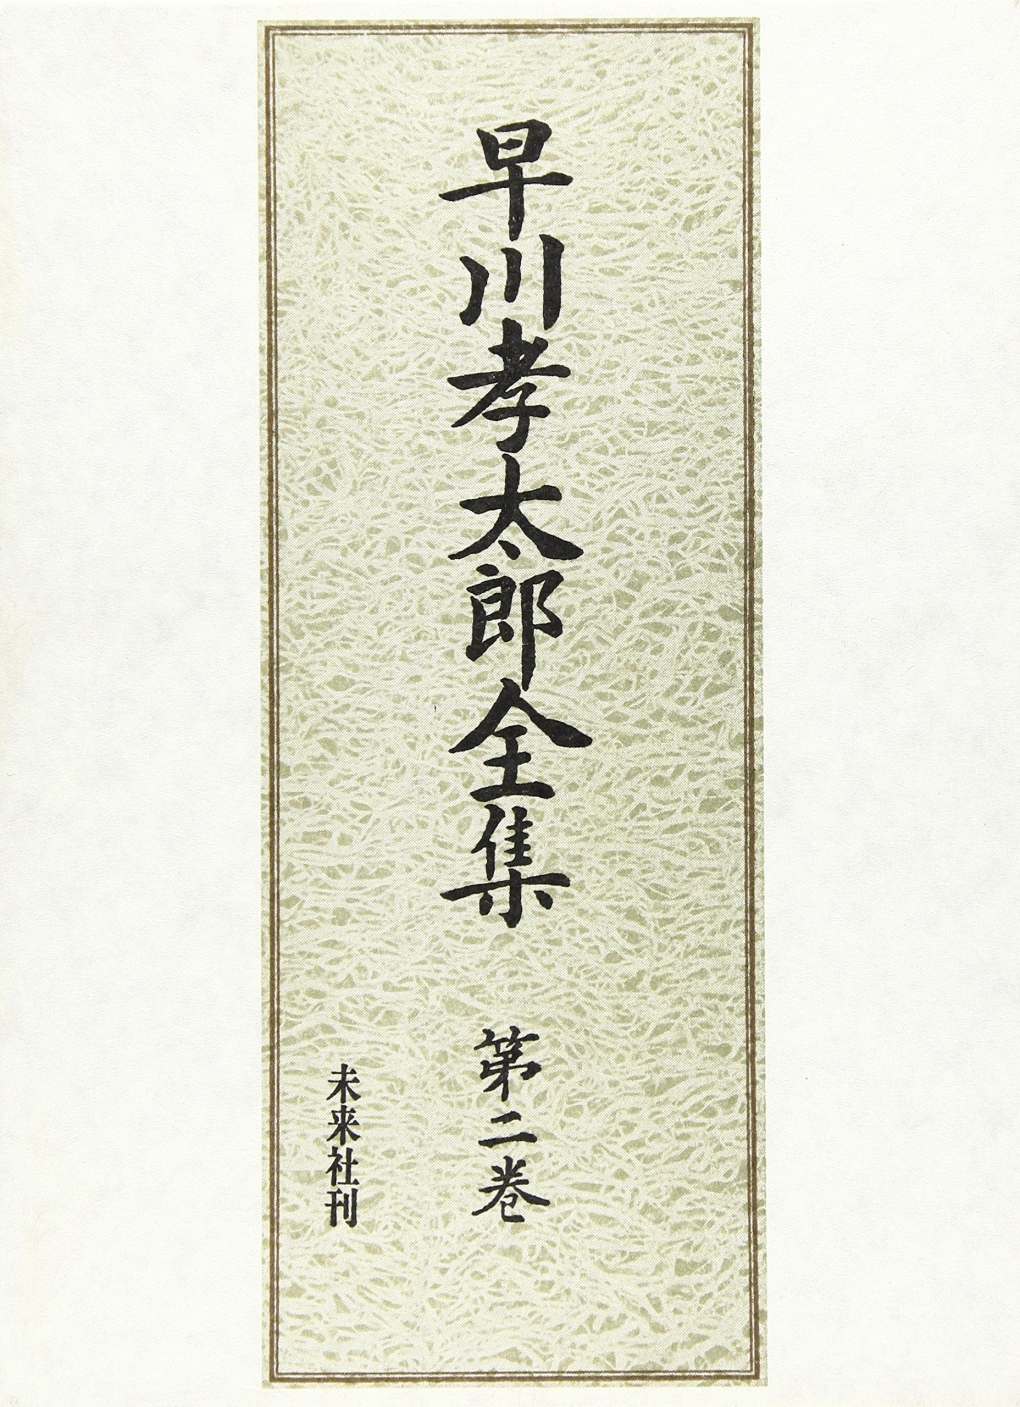 早川孝太郎全集 第二巻
未来社刊